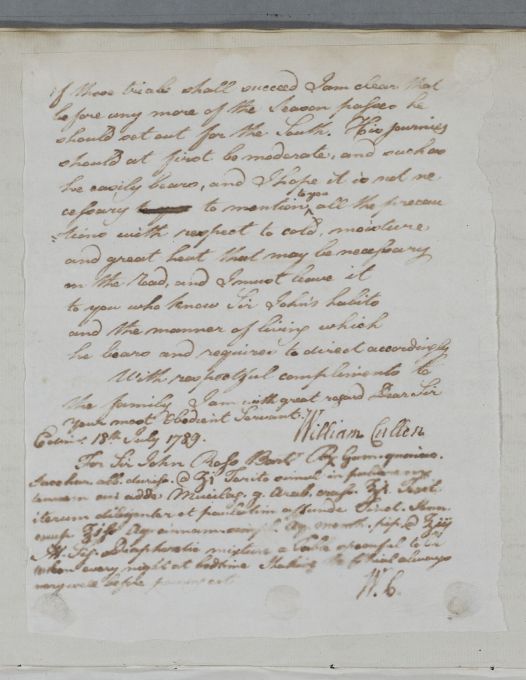 if those trials shall succeed I am clear that
before any more of the Season passes he
should set out for the South. His journies
should at first be moderate, and such as
he easily bears, and I hope it is not ne
cessary to mention to you all the precau
=tions with respect to cold, moisture
and great heat that may be necessary
on the Road, and I must leave it
to you who know Sir John's habits
and the manner of living which
he bears and requires to direct accordingly
With respectful compliments to
the family, I am with great regard Dear Sir
Your most Obedient Servant
William Cullen
Edinr. 18th July 1789.
For Sir John Ross Bart. Rx Gum. guaiac.
Sacchar. alb. duriss. @ ʒi Terito simul in pulverem
adde Mucilag. g. Arab. ʒi Terit
iterum diligenter et paulatim affunde Tinct.
Aq. cinnamom. simpl. Aq. menth. pip. @ ʒiij
M. Sig. Diaphoretic mixture a table spoonful to be
taken every night at bedtime Shaking the Phial always
very well before
W. C.